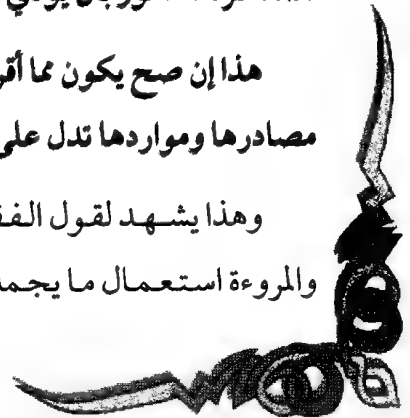 هذا إن صح يكون مما أقر
مصادرها ومواردها تدل على
وهذا يشهد لقول الفق
والمروءة استعمال ما يجمد